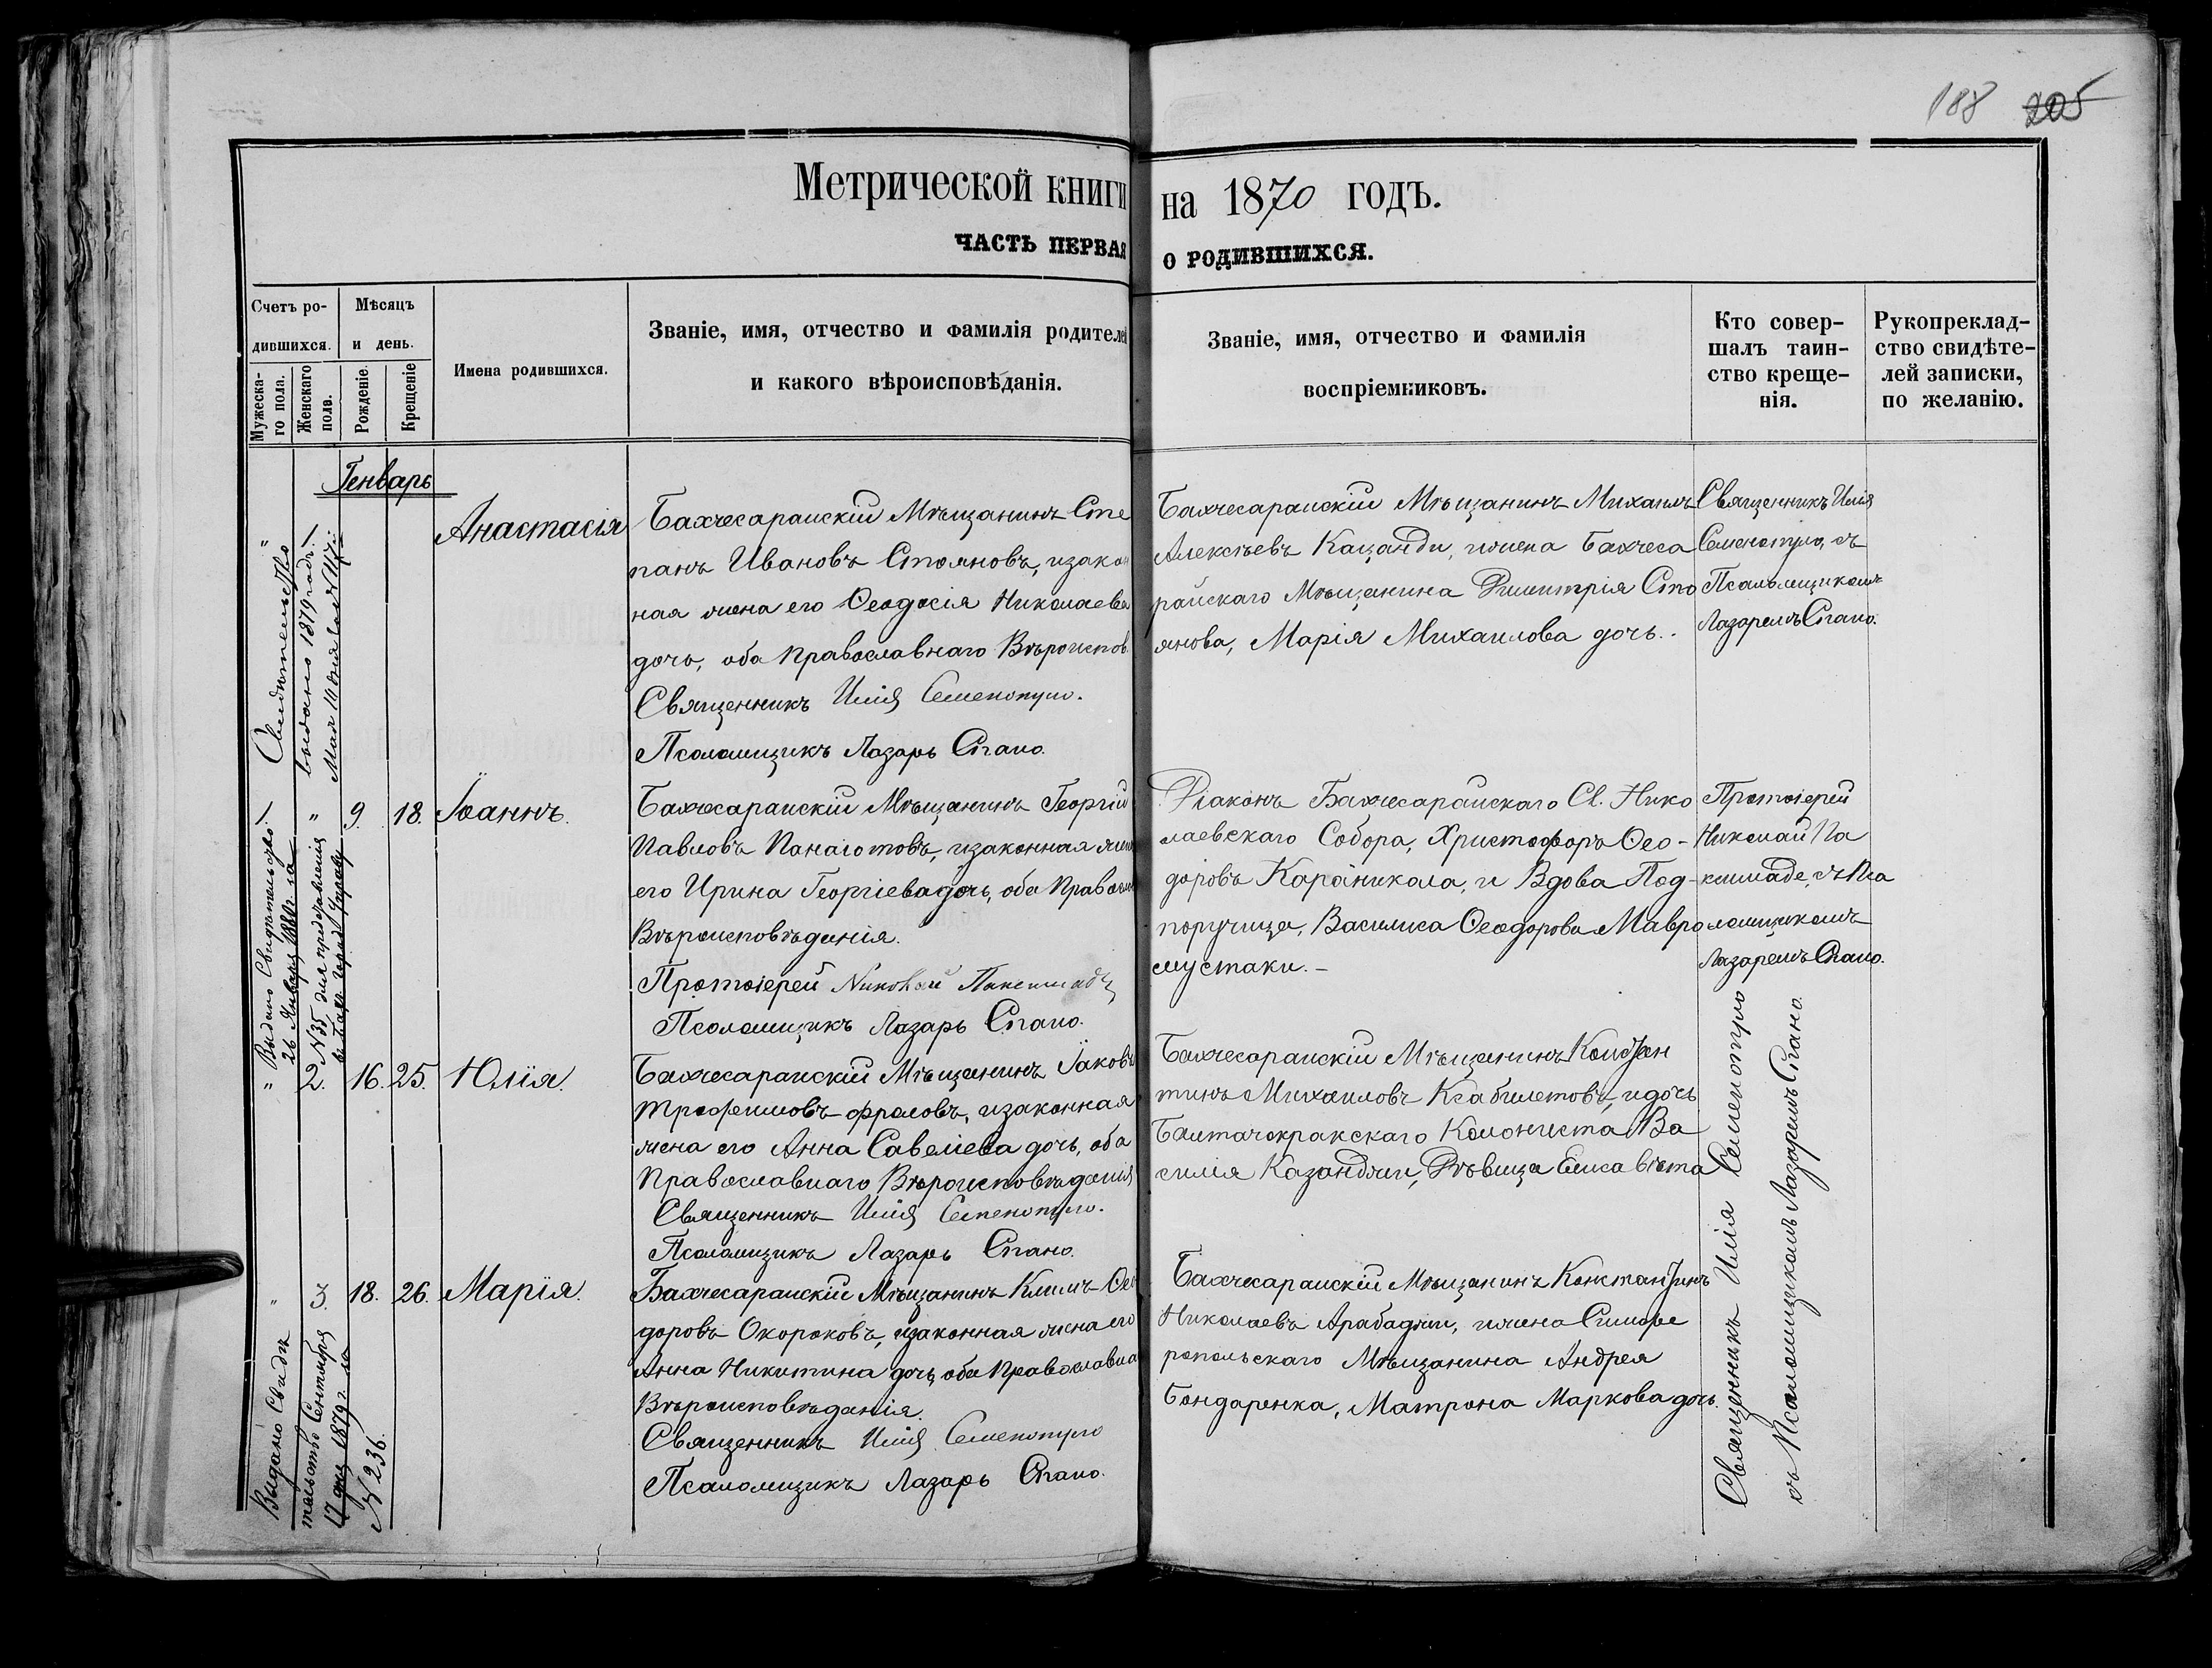 188 205
Метрической книги на 1870 годъ.
ЧАСТЬ ПЕРВАЯ О РОДИВШИХСЯ.
Счетъ ро-
дившихся.
Мужеска-
го пола.
Женскаго
пола.
Мѣсяцъ
и день.
Рожденіе.
Крещеніе
Имена родившихся.
Званіе, имя, отчество и фамилія родителей
и какого вѣроисповѣданія.
Званіе, имя, отчество и фамилія
воспріемниковъ.
Кто совер-
шалъ таин-
ство креще-
нія.
Рукоприклад-
ство свидѣте-
лей записки,
по желанію.
Генварь
" 1.
Свидѣтельство
выдано 1879 года
Мая
Анастасія
Бахчесарайскій Мѣщанинъ Сте
панъ Ивановъ Стояновъ, изакон
ная жена его Ѳеодосія Николаева
дочь, оба Православнаго Вѣроиспов.
Священникъ Илія Семенопуло.
Псаломщикъ Лазарь Спано.
Бахчесарайскій Мѣщанинъ Михаилъ
Алексѣевъ Казанди, ижена Бахчеса
райскаго Мѣщанина Димитрія Сто
янова, Марія Михаилова дочь.
Священникъ Илія
Семенопуло, съ
Псаломщикомъ
Лазаремъ Спано.
1. " 9. 18. Іоаннъ.
Выдано Свидѣтельство
26 Января 1880 го
№35, для представленія
въ Бахч. город. Управу
Бахчесарайскій Мѣщанинъ Георгій
Павловъ Панаіотовъ, изаконная жена
его Ирина Георгіева дочь, оба Православ
Вѣроисповѣданія.
Протоіерей Николай Паксимадѣ
Псаломщикъ Лазарь Спано.
Діаконъ Бахчесарайскаго Св. Нико
лаевскаго Собора, Христофоръ Ѳео-
доровъ Караникола, и Вдова Под-
поручица, Василиса Ѳеодорова Мавро
мустаки.-
Протоіерей
Николай Па
ксимаде, съ Пса
ломщикомъ
Лазаремъ Спано.
" 2. 16. 25. Юлія.
Бахчесарайскій Мѣщанинъ Іаковъ
Трофимовъ Фроловъ, изаконная
жена его Анна Савеліева дочь, оба
Православнаго Вѣроисповѣданія
Священникъ Илія Семенопуло.
Псаломщикъ Лазарь Спано.
Бахчесарайскій Мѣщанинъ Констан
тинъ Михаиловъ Ксабилетовъ, идочь
Балтачокракскаго Колониста Ва
силія Казанджи, Дѣвица Елисавѣта
" 3. 18. 26. Марія.
Выдано Свидѣ
тельство Сентября
17 дня 1879 го
№ 236.
Бахчесарайскій Мѣщанинъ Климъ Ѳео
доровъ Окороковъ, изаконная жена его
Анна Никитина дочь, оба Православна
Вѣроисповѣданія.
Священникъ Илія Семенопуло
Псаломщикъ Лазарь Спано.
Бахчесарайскій Мѣщанинъ Константинъ
Николаевъ Арабаджи, ижена Симфе
ропольскаго Мѣщанина Андрея
Бондаренка, Матрона Маркова дочь.
Священникъ Илія Семенопуло
съ Псаломщикомъ Лазаремъ Спано.